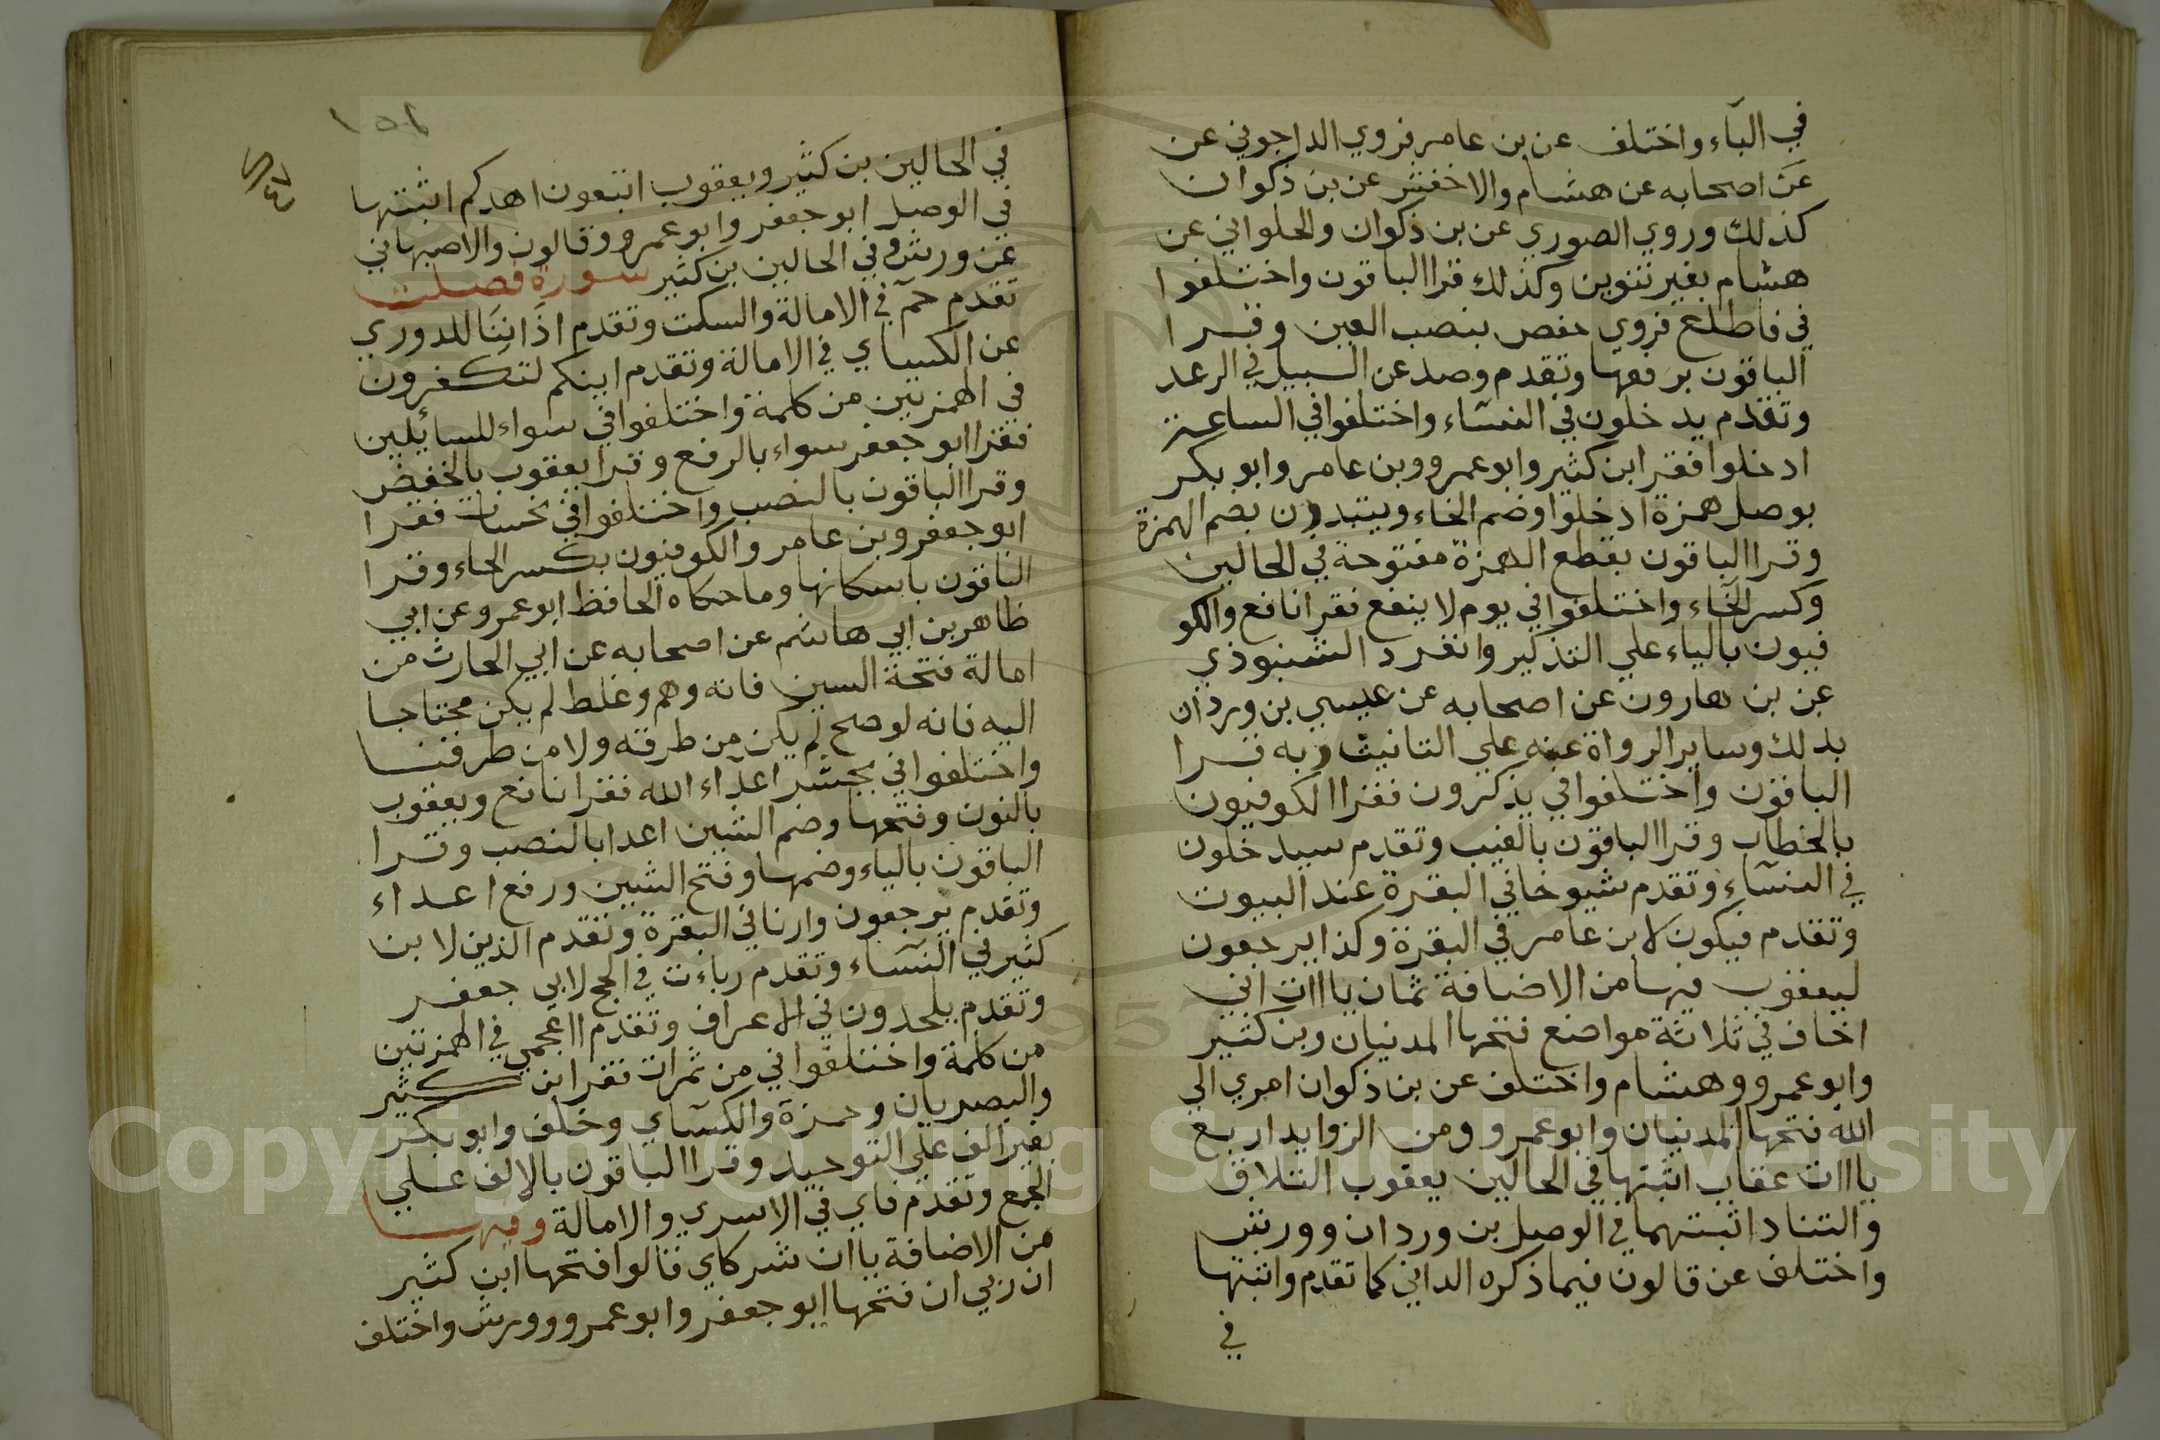 في الباء واختلف عن بن عامر فروي الداجوني عن
عن اصحابه عن هشام والاخفش عن بن ذكوان
كذلك وروي الصوري عن بن ذكوان والحلواني عن
هشام بغير تنوين وكذلك قرا الباقون واختلفوا
في فاطلع فروي حفص بنصب العين وقرا
الباقون برفعها وتقدم وصد عن السبيل في الرعد
وتقدم يدخلون في النساء واختلفوا في الساعة
ادخلوا فقرا ابن كثير وابو عمرو وبن عامر وابو بكر
بوصل همزة ادخلوا وضم الخاء ويبتدون بضم الهمزة
وقرا الباقون بقطع الهمزة مفتوحة في الحالين
وكسر الخاء واختلفوا في يوم لا ينفع فقرا نافع والكو
فيون بالياء علي التذكير وانفرد الشنبوذي
عن بن هارون عن اصحابه عن عيسي بن وردان
بذلك وساير الرواة عنه علي التانيث وبه قرا
الباقون واختلفوا في يذكرون فقرا الكوفيون
بالخطاب وقرا الباقون بالغيب وتقدم سيدخلون
في النساء وتقدم شيوخا في البقرة عند البيوت
وتقدم فيكون لابن عامر في البقرة وكذا يرجعون
ليعقوب فيها من الاضافة ثمان ياات اني
اخاف في ثلاثة مواضع فتحها المدنيان وبن كثير
وابو عمرو وهشام واختلف عن بن ذكوان امري الي
الله فتحها المدنيان وابو عمرو ومن الزوايد اربع
ياات عقاب اثبتها في الحالين يعقوب التلاق
والتناد اثبتهما في الوصل بن وردان وورش
واختلف عن قالون فيما ذكره الداني كما تقدم واثبتها
في
١٥٦
٤٧
في الحالين بن كثير ويعقوب اتبعون اهدكم اثبتها
في الوصل ابو جعفر وابو عمرو وقالون والاصبهاني
عن ورش وفي الحالين بن كثير سورة فصلت
تقدم حم في الامالة والسكت وتقدم اذاننا للدوري
عن الكسياي في الامالة وتقدم اينكم لتكفرون
في الهمزتين من كلمة واختلفوا في سواء للسائلين
فقرا ابو جعفر سواء بالرفع وقرا يعقوب بالخفض
وقرا الباقون بالنصب واختلفوا في نحسات فقرا
ابو جعفر وبن عامر والكوفيون بكسر الحاء وقرا
الباقون باسكانها وما حكاه الحافظ ابو عمرو عن ابي
طاهر بن ابي هاشم عن اصحابه عن ابي الحارث من
امالة فتحة السين فانه وهم وغلط لم يكن محتاجا
اليه فانه لو صح لم يكن من طرقه ولا من طرقنا
واختلفوا في يحشر اعداء الله فقرا نافع ويعقوب
بالنون وفتحها وضم الشين اعدا بالنصب وقرا
الباقون بالياء وضمها وفتح الشين ورفع اعداء
وتقدم يرجعون وارنا في البقرة وتقدم الذين لابن
كثير في النساء وتقدم رباءت في الحج لابي جعفر
وتقدم يلحدون في الاعراف وتقدم ااعجمي في الهمزتين
من كلمة واختلفوا في من ثمرات فقرا ابن كثير
والبصريان وحمزة والكسآي وخلف وابو بكر
بغير الف علي التوحيد وقرا الباقون بالالف علي
الجمع وتقدم ناي في الاسري والامالة وفيها
من الاضافة ياان شركاي قالوا فتحها ابن كثير
ان ربي ان فتحها ابو جعفر وابو عمرو وورش واختلف
Copyright © King Saud University